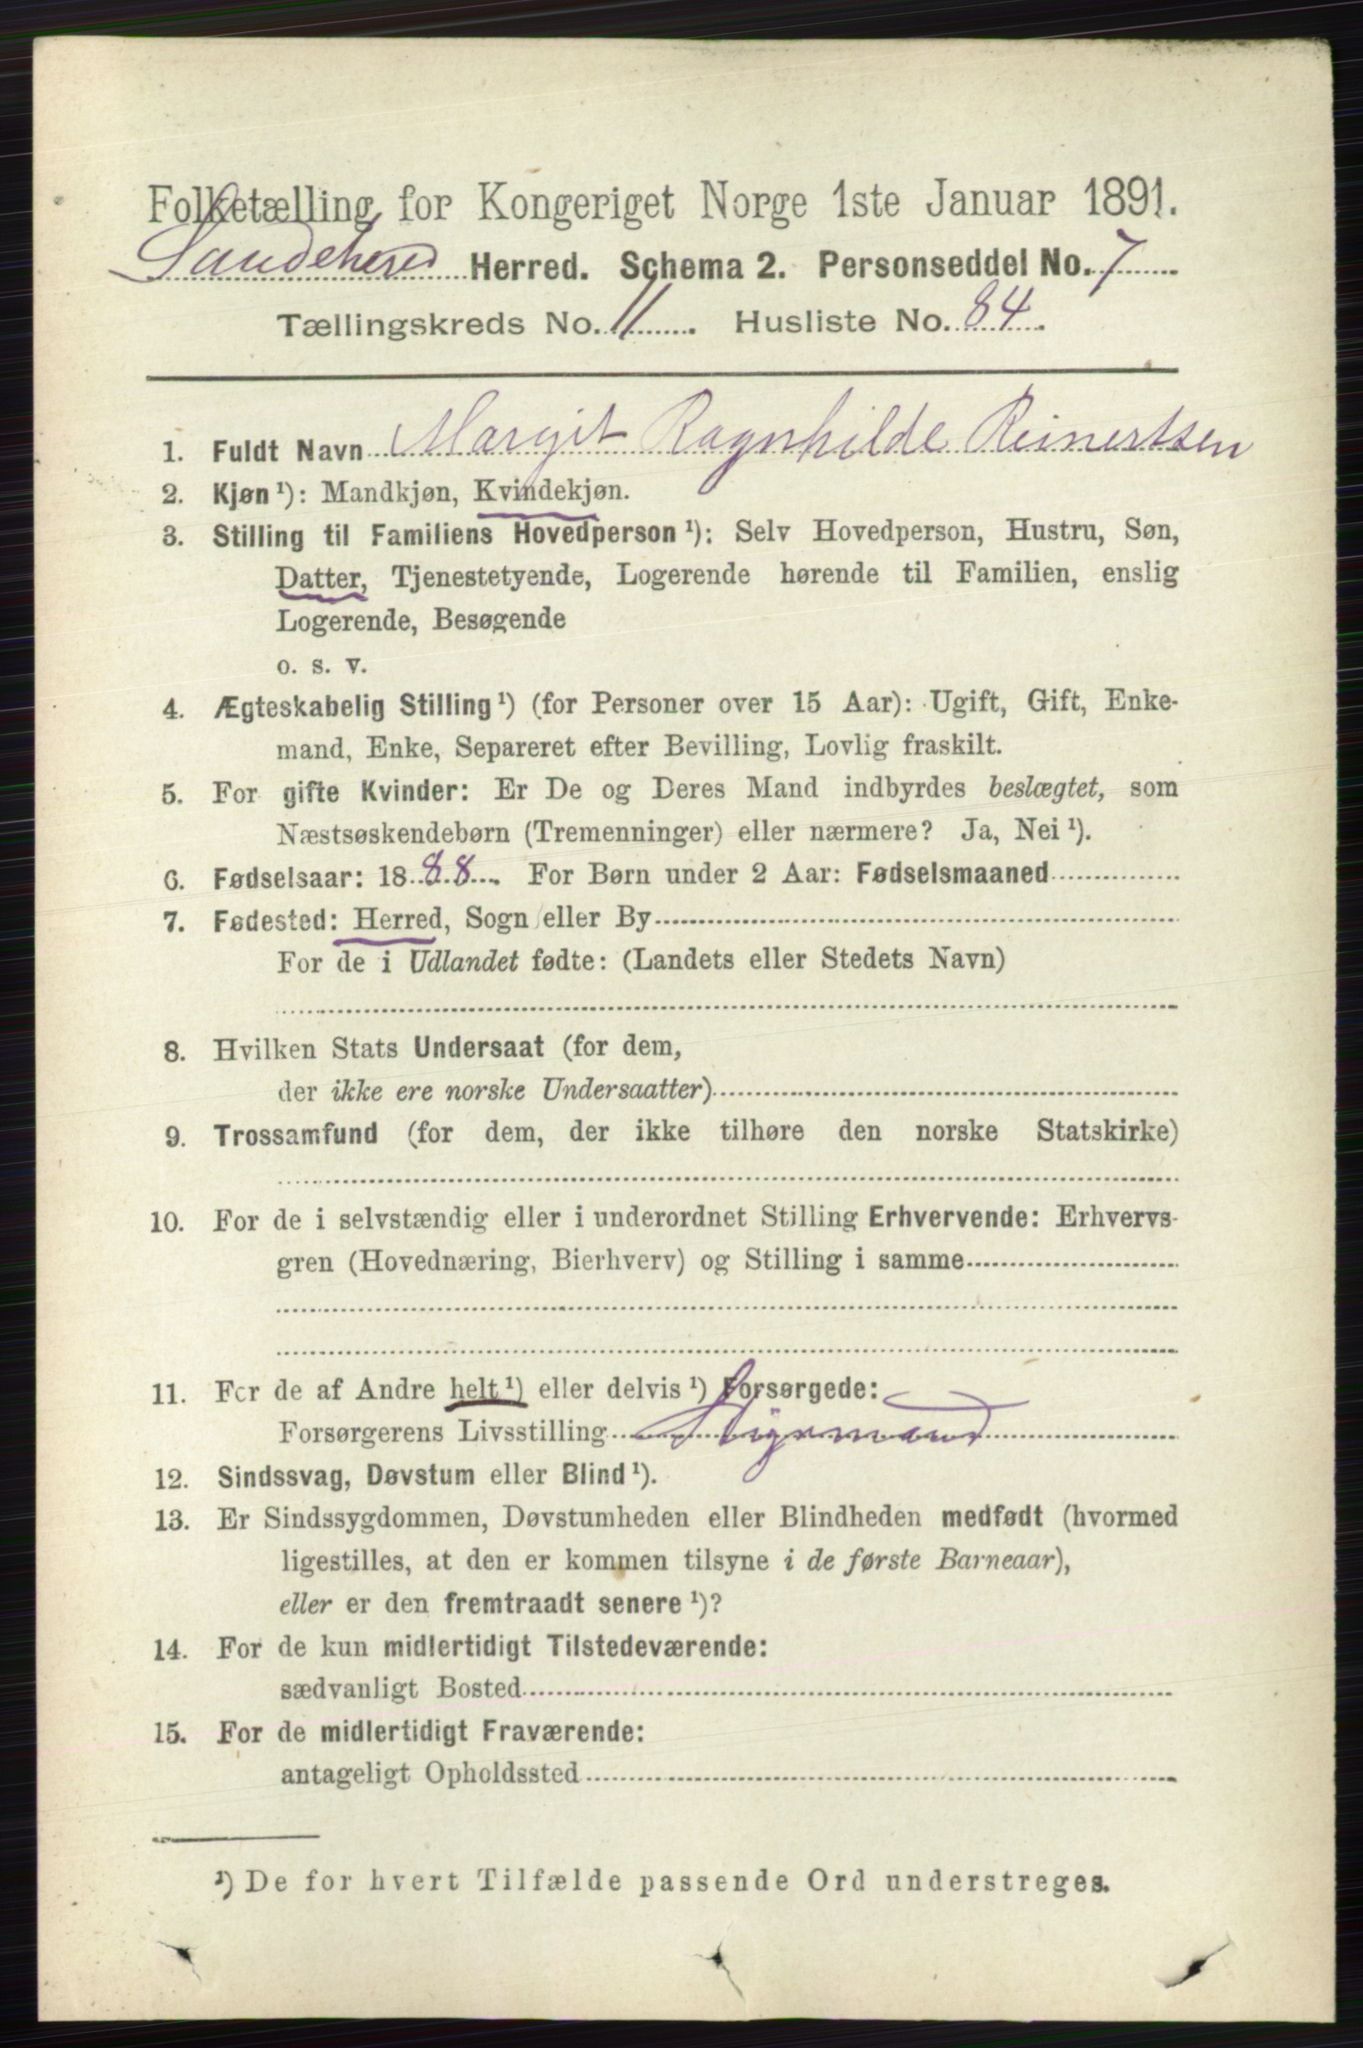 Folketælling for Kongeriget Norge 1ste Januar 1891.
Sandehered Herred. Schema 2. Personseddel No. 7
Tællingskreds No. 11. Husliste No. 84.
1. Fuldt Navn Margit Ragnhilde Reinertsen
2. Kjøn ¹): Mandkjøn, Kvindekjøn.
3. Stilling til Familiens Hovedperson ¹): Selv Hovedperson, Hustru, Søn,
Datter, Tjenestetyende, Logerende hørende til Familien, enslig
Logerende, Besøgende
o. s. v.
4. Ægteskabelig Stilling ¹) (for Personer over 15 Aar): Ugift, Gift, Enke-
mand, Enke, Separeret efter Bevilling, Lovlig fraskilt.
5. For gifte Kvinder: Er De og Deres Mand indbyrdes beslægtet, som
Næstsøskendebørn (Tremenninger) eller nærmere? Ja, Nei ¹).
6. Fødselsaar: 1888. For Børn under 2 Aar: Fødselsmaaned
7. Fødested: Herred, Sogn eller By
For de i Udlandet fødte: (Landets eller Stedets Navn)
8. Hvilken Stats Undersaat (for dem,
der ikke ere norske Undersaatter)
9. Trossamfund (for dem, der ikke tilhøre den norske Statskirke)
10. For de i selvstændig eller i underordnet Stilling Erhvervende: Erhvervs-
gren (Hovednæring, Bierhverv) og Stilling i samme
11. For de af Andre helt ¹) eller delvis ¹) Forsørgede:
Forsørgerens Livsstilling
12. Sindssvag, Døvstum eller Blind ¹).
13. Er Sindssygdommen, Døvstumheden eller Blindheden medfødt (hvormed
ligestilles, at den er kommen tilsyne i de første Barneaar),
eller er den fremtraadt senere ¹)?
14. For de kun midlertidigt Tilstedeværende:
sædvanligt Bosted
15. For de midlertidigt Fraværende:
antageligt Opholdssted
¹) De for hvert Tilfælde passende Ord understreges.